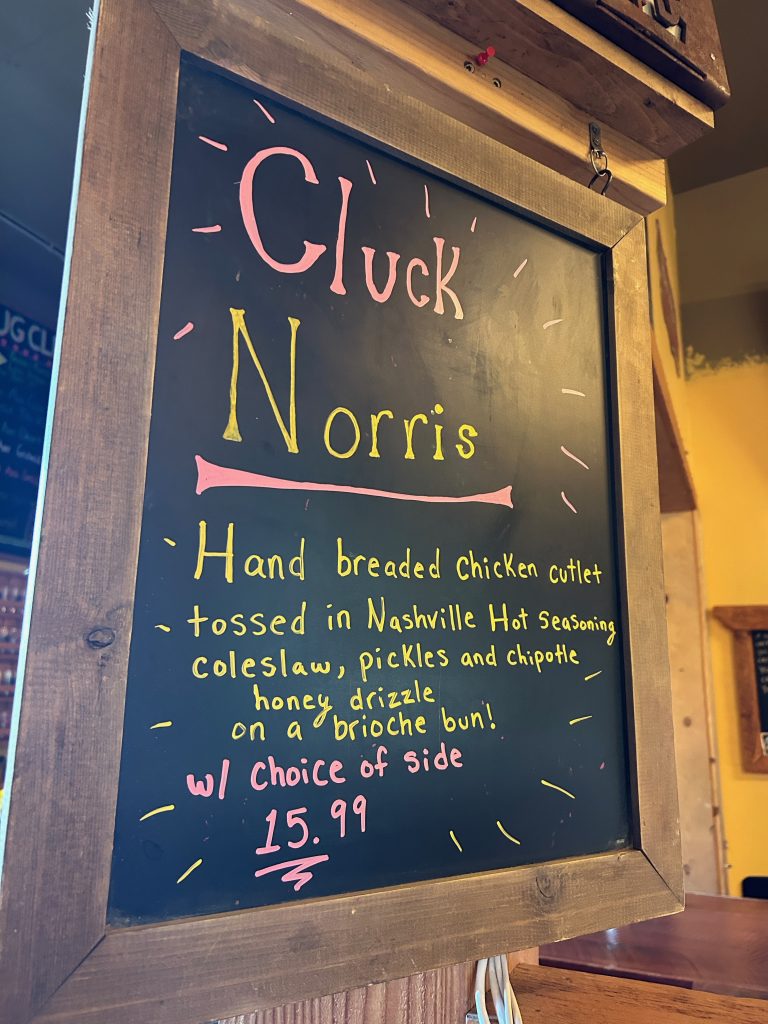 Cluck
Norris
Hand breaded chicken cutlet
tossed in Nashville Hot seasoning
coleslaw, pickles and chipotle
honey drizzle
on a brioche bun!
w/ choice of side
15.99